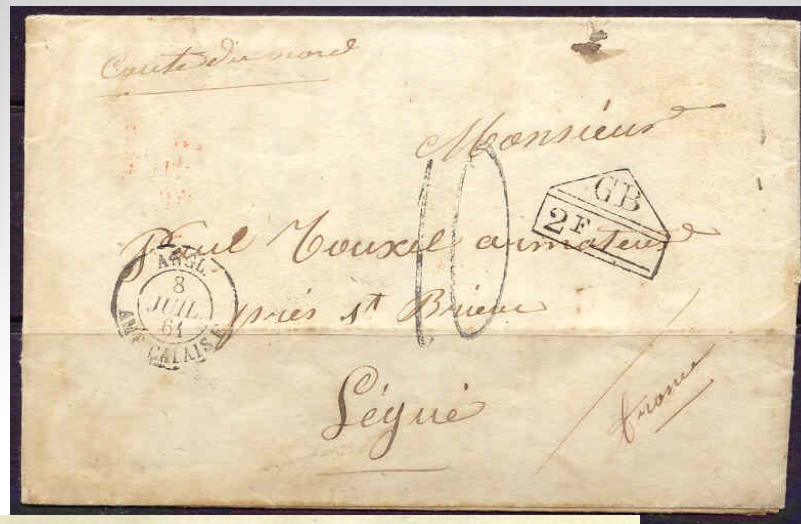 Coute du nord
Monsieur
GB
2F
10
Paul Touxel armateur
ANGL.
8
JUIL.
61
AMB. CALAIS F
près st Brieux
Légué
france